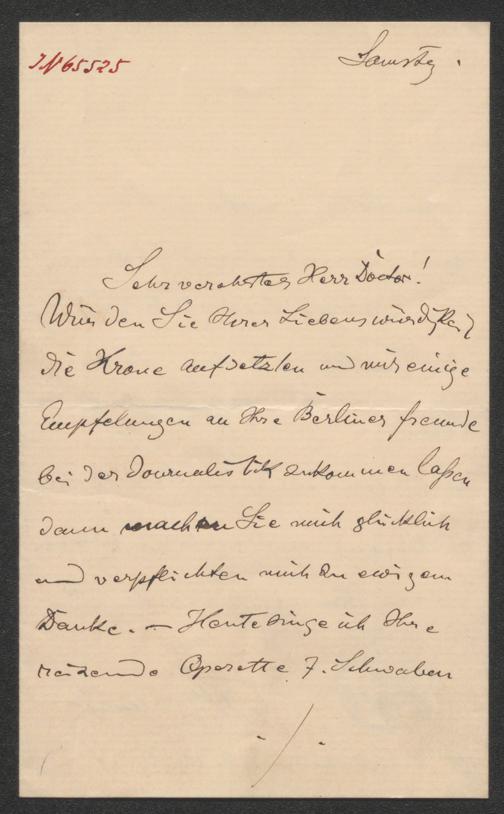 IN 65525
Samstag.
Sehr verehrtes Herr Doctor!
Würden Sie Ihrer Liebenswürdigkeit
die Krone aufsetzten und mir einige
Empfelungen an Ihre Berliner freunde
bei der Journalistik zukommen laßen
dann machen Sie mich glücklich
und verpflichten mich zu ewigem
Danke. — Heute singe ich Ihre
reizende Operette 7. Schwaben